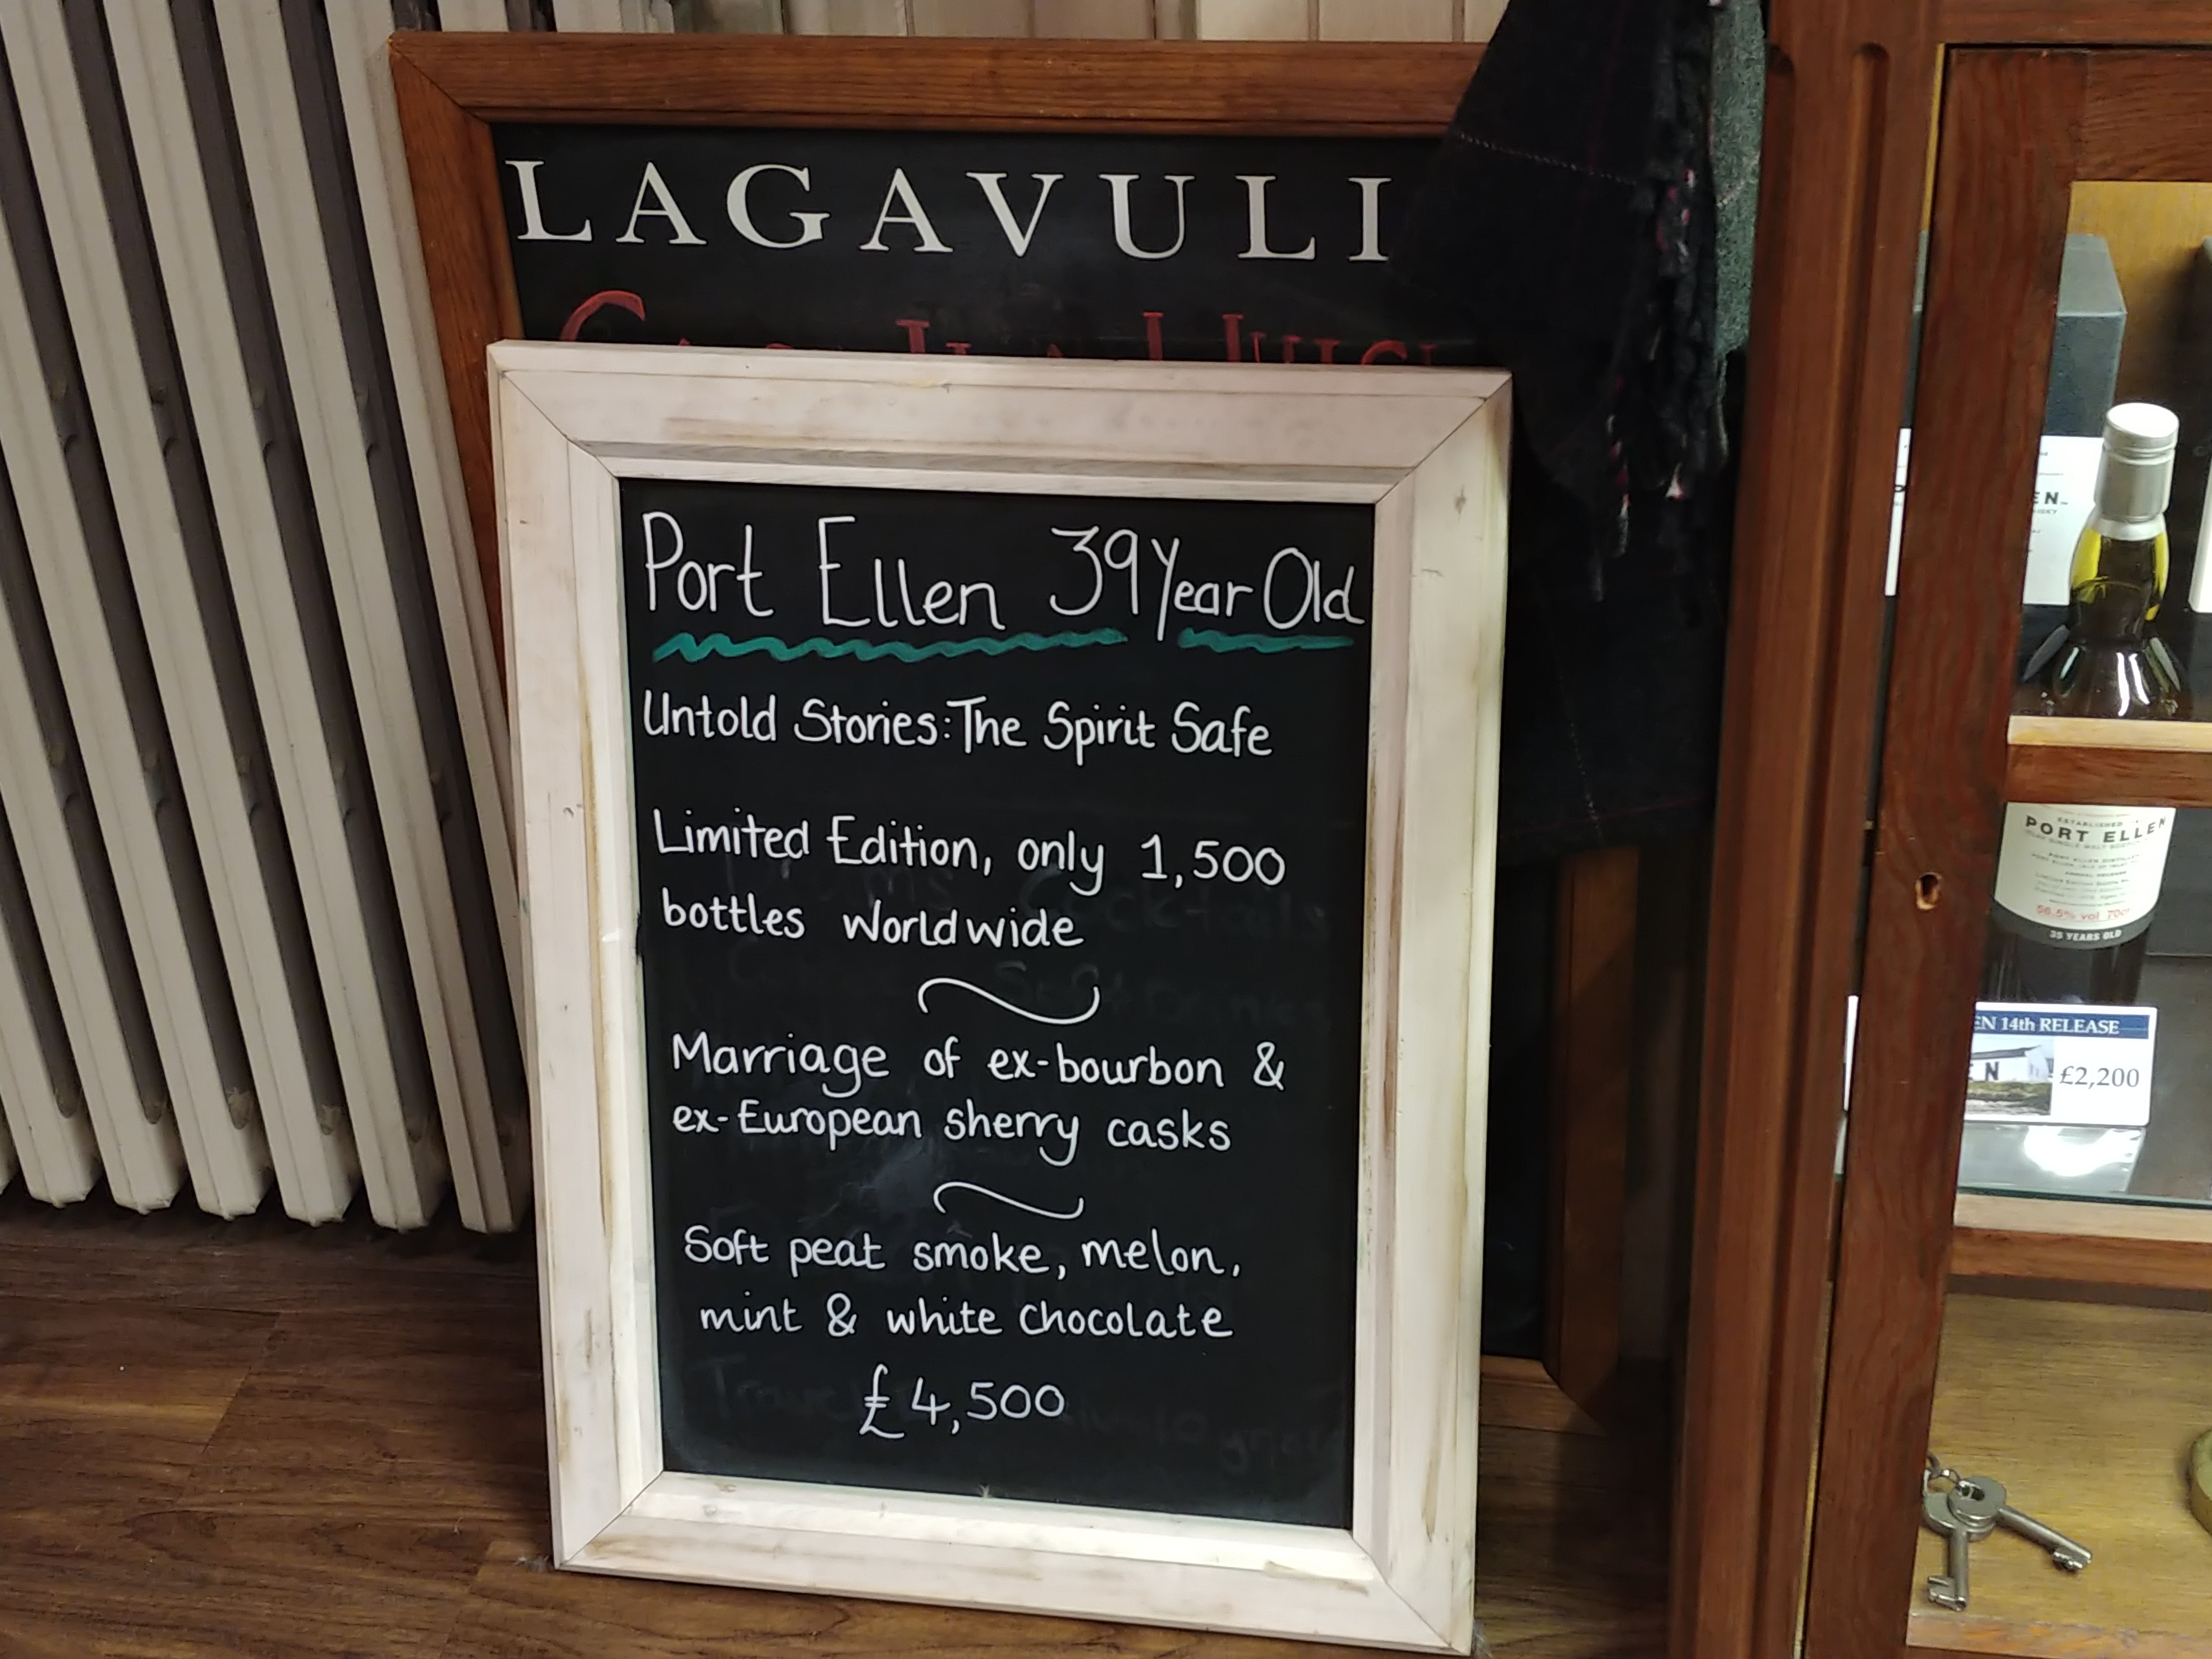 LAGAVULI
Port Ellen 39 Year Old
Untold Stories: The Spirit Safe
Limited Edition, only 1,500
bottles worldwide
Marriage of ex-bourbon &
ex-European sherry casks
Soft peat smoke, melon,
mint & white chocolate
£4,500
ESTABLISHED
PORT ELLEN
56.5% vol 70cl
35 YEARS OLD
EN 14th RELEASE
£2,200